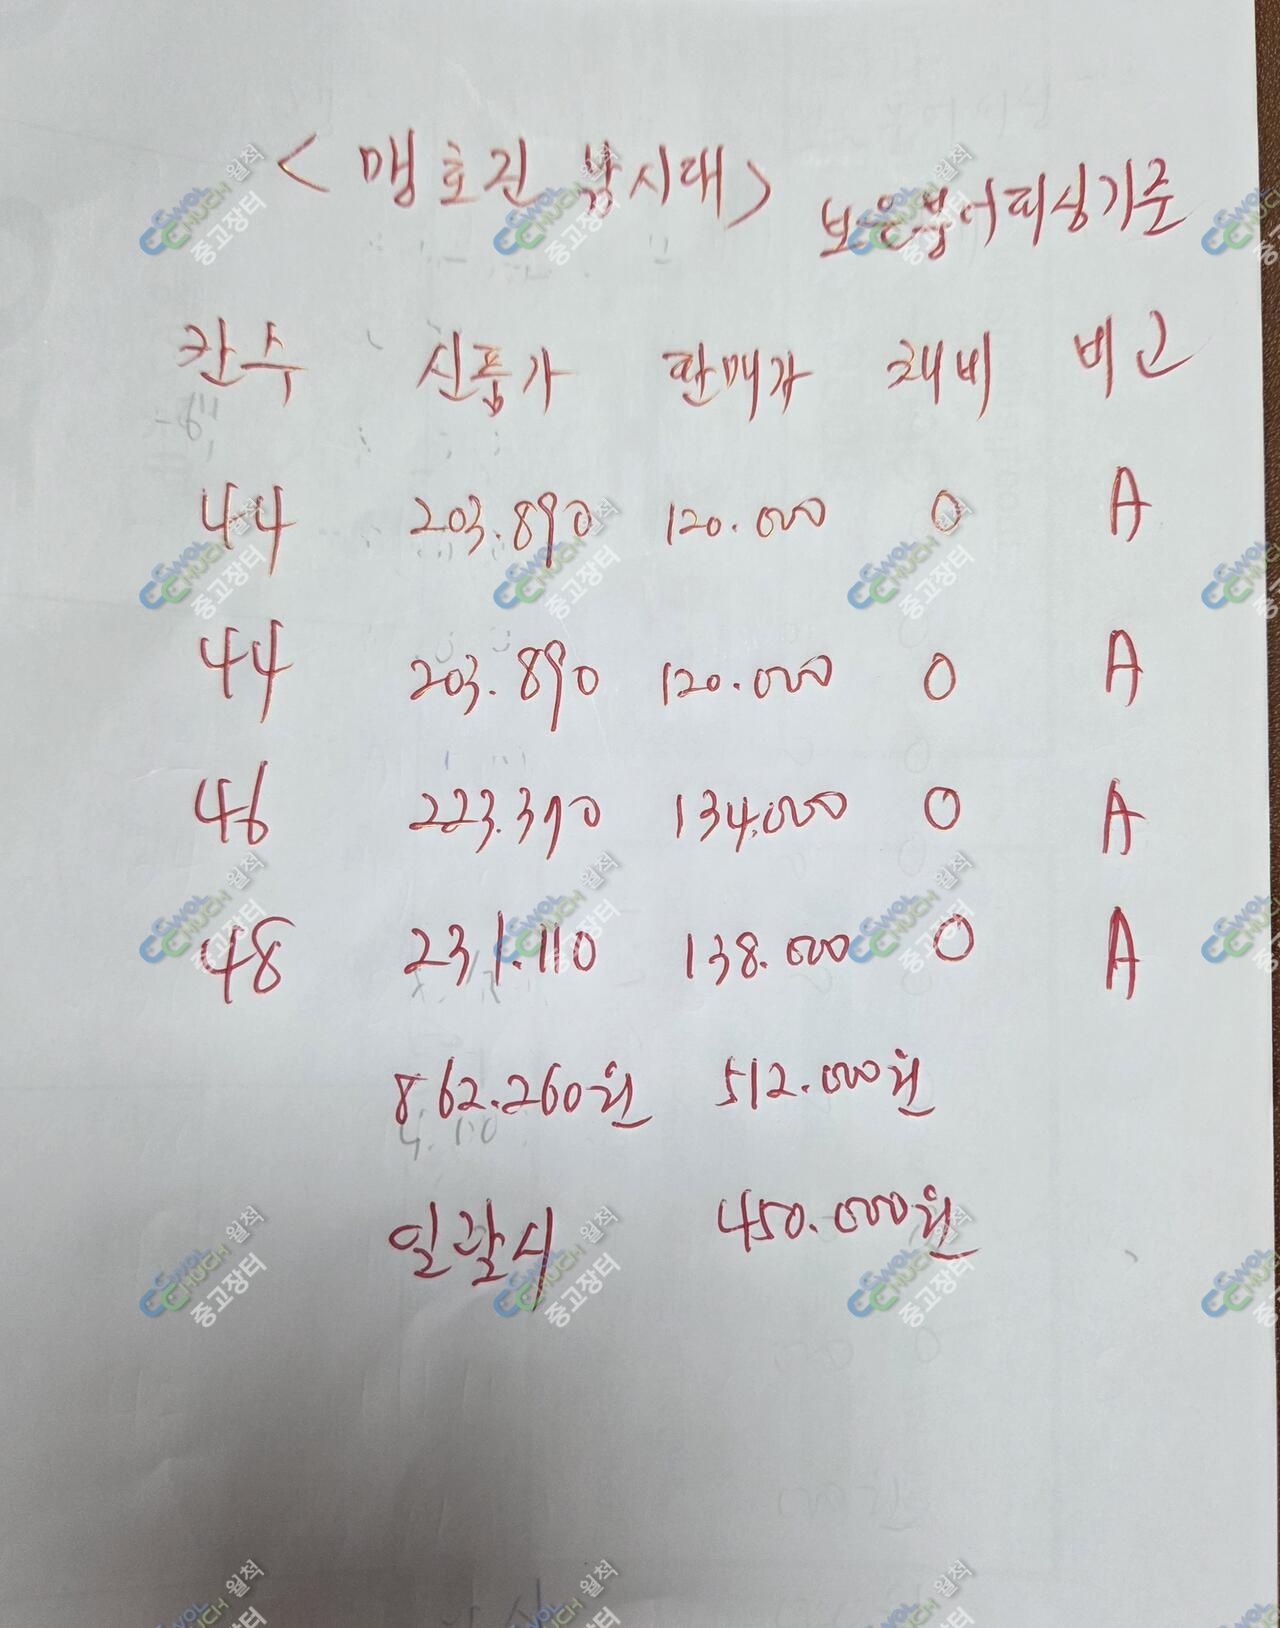 <맹호건 낚시대> 보은붕어피싱기준
칸수 신품가 판매가 채비 비고
44 203.890 120.000 0 A
44 203.890 120.000 0 A
46 223.370 134.000 0 A
48 231.110 138.000 0 A
862.260원 512.000원
일괄시 450.000원
CWOL CHUCK 월척 중고장터